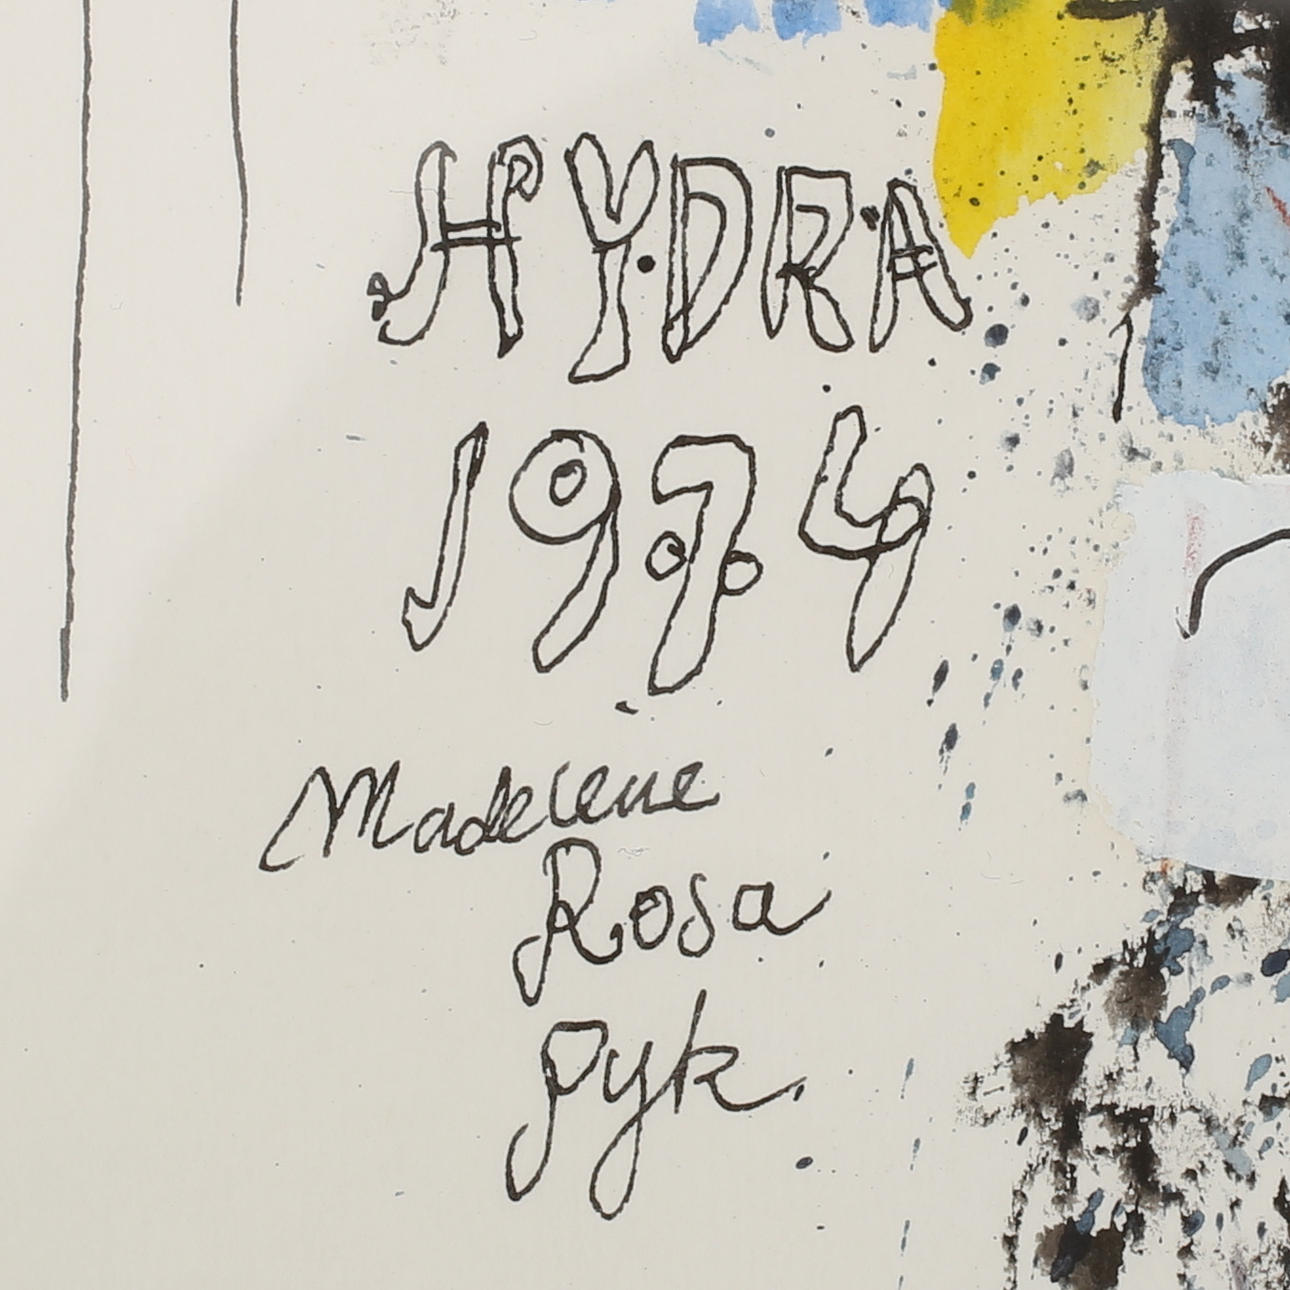 HYDRA
1974
Madeleine
Rosa
Pyk